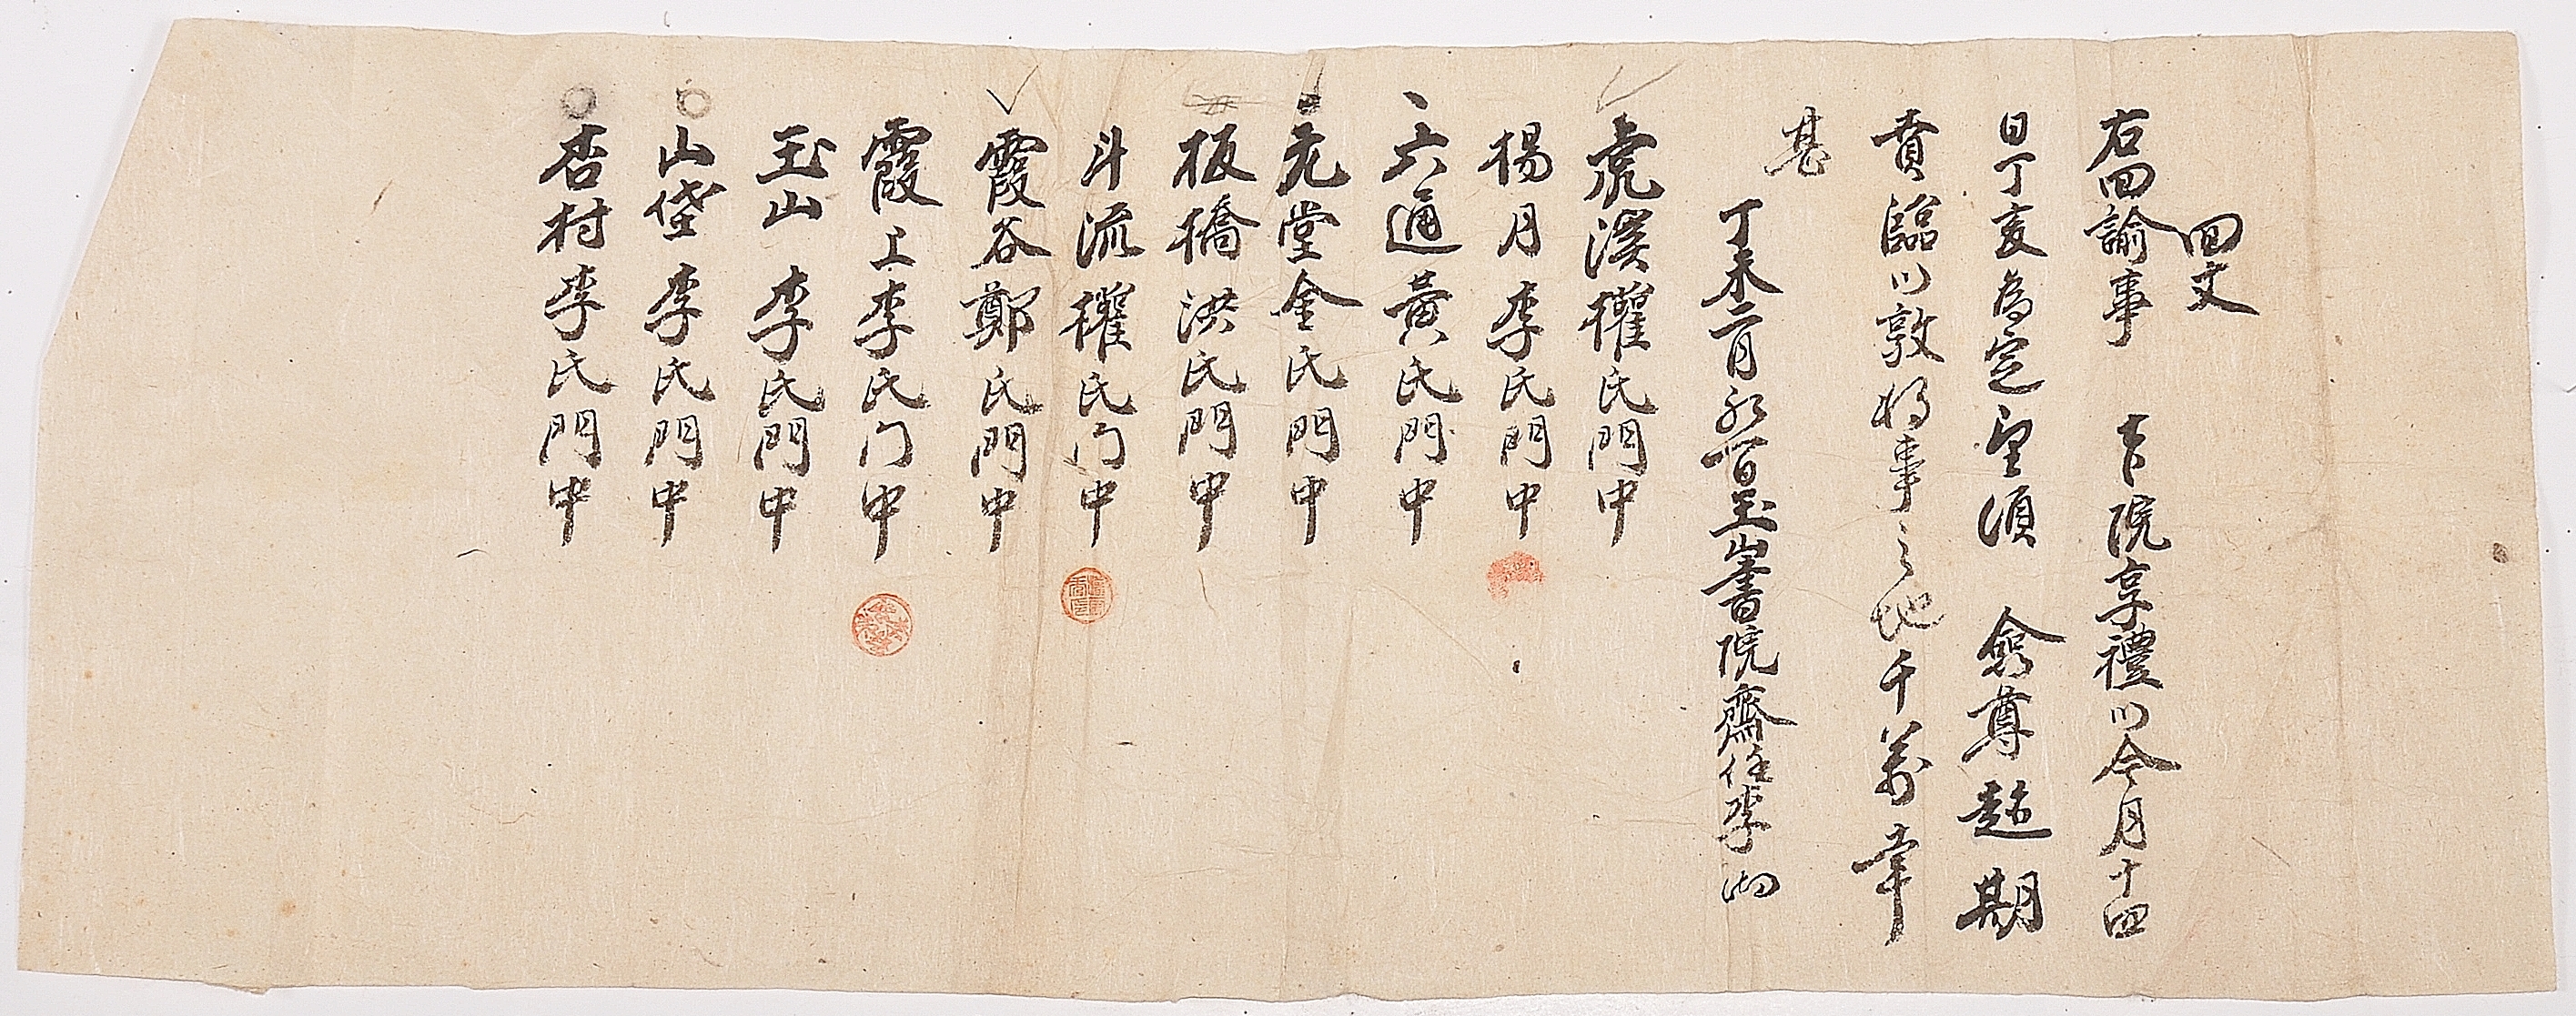 回文
右回諭事 院享禮以今月十四
日丁亥爲定望須 僉尊趁期
賁臨以敦將事之地千萬幸
甚
丁未二月初一日玉山書院齋任李
虎溪權氏門中
楊月李氏門中
六通黃氏門中
元堂金氏門中
板橋洪氏門中
斗流權氏門中
霞谷鄭氏門中
霞上李氏門中
玉山李氏門中
山垈李氏門中
杏村李氏門中